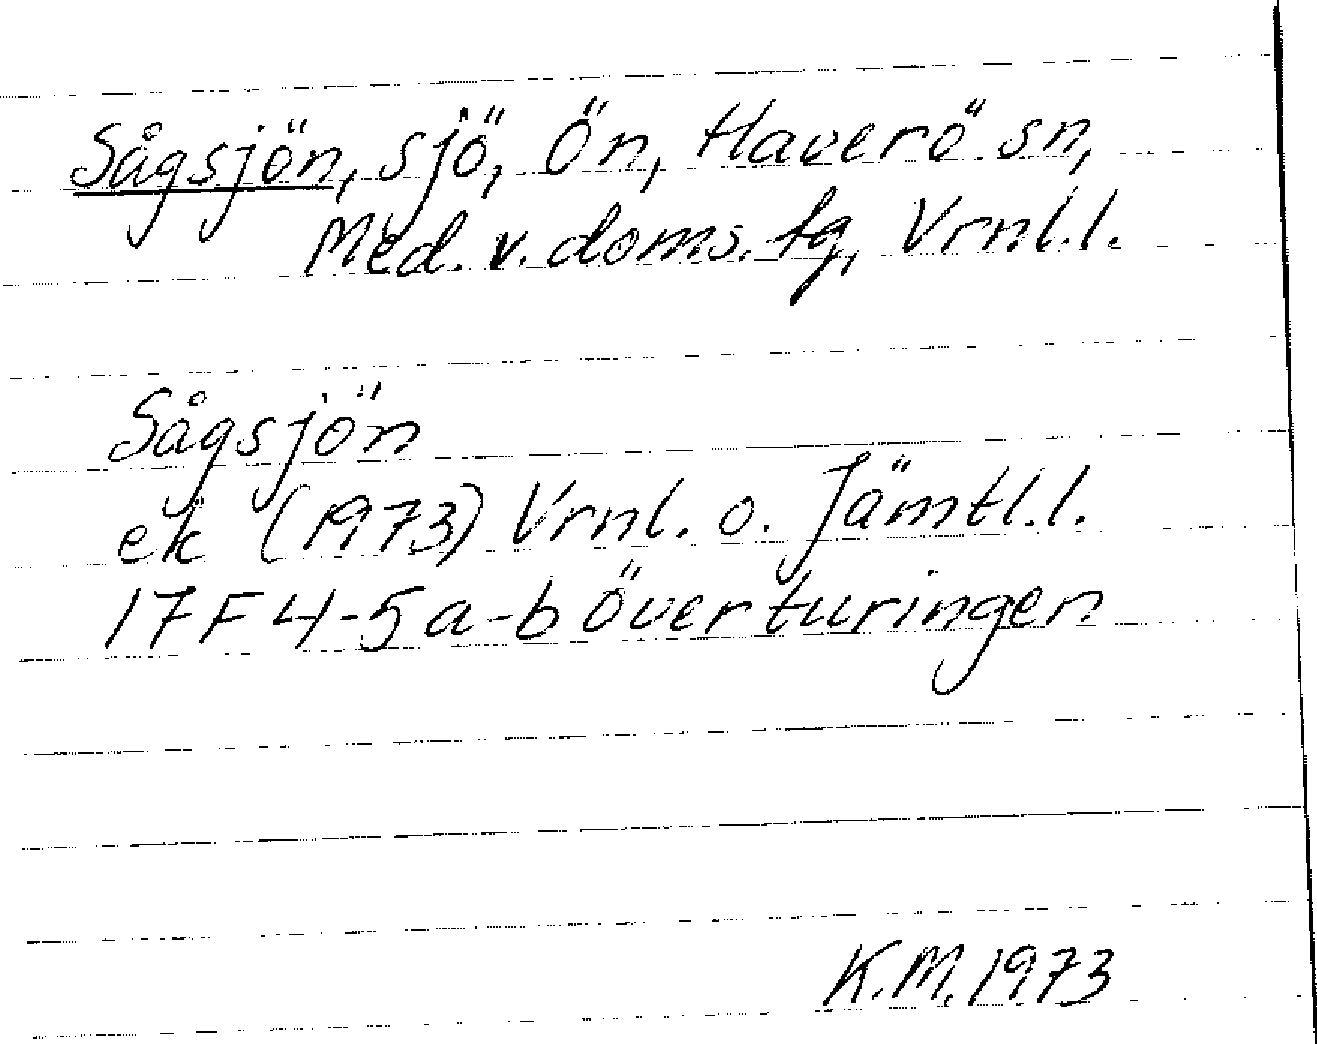 Sågsjön, sjö, Ön, Haverö sn,
Med. v. doms. tg, Vrnl.l.
Sågsjön
ek (1973) Vrnl. o. Jämtl.l.
17F 4-5 a-b Överturingen
K.M. 1973